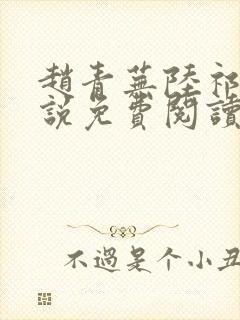 趙青蕪陸祁
說免費閱讀
不過是个小丑